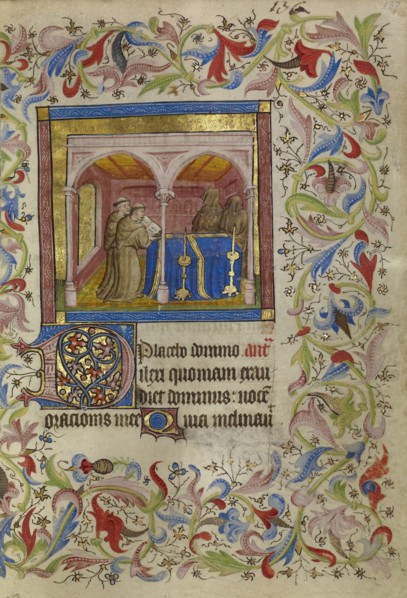 Placebo domino. ant̄
Dilexi quoniam exau
diet dominus: uocē
oracionis mee Quia inclinaui